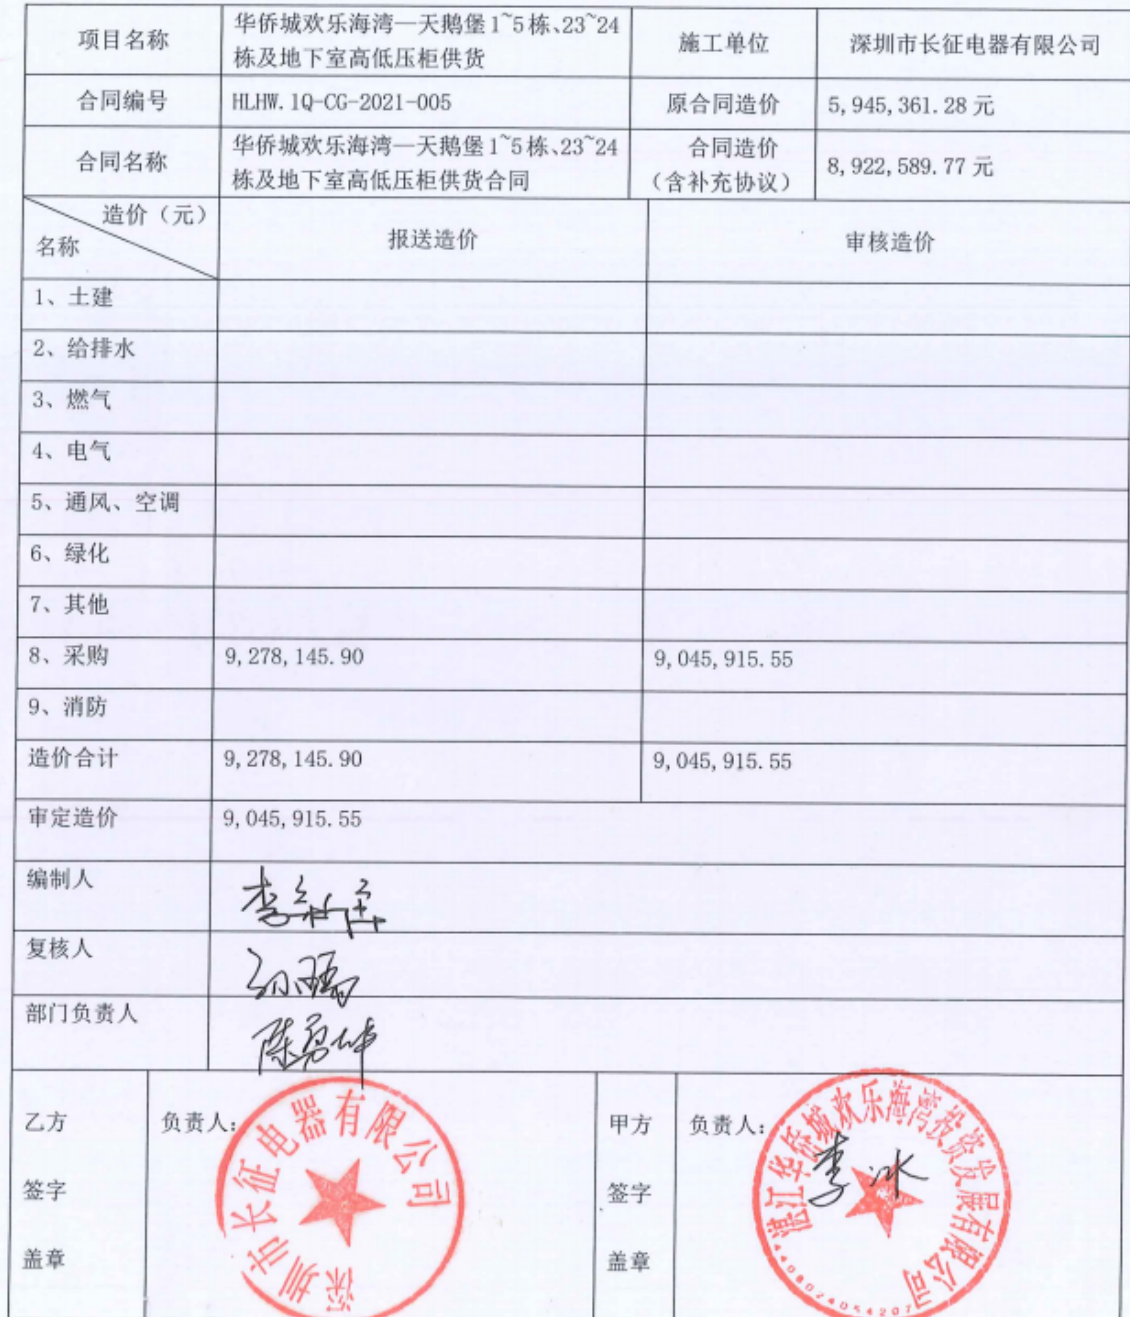 项目名称
华侨城欢乐海湾—天鹅堡1~5栋、23~24
栋及地下室高低压柜供货
施工单位
深圳市长征电器有限公司
合同编号
HLHW.1Q-CG-2021-005
原合同造价
5,945,361.28元
合同名称
华侨城欢乐海湾—天鹅堡1~5栋、23~24
栋及地下室高低压柜供货合同
合同造价
（含补充协议）
8,922,589.77元
造价（元）
名称
报送造价
审核造价
1、土建
2、给排水
3、燃气
4、电气
5、通风、空调
6、绿化
7、其他
8、采购
9,278,145.90
9,045,915.55
9、消防
造价合计
9,278,145.90
9,045,915.55
审定造价
9,045,915.55
编制人
复核人
部门负责人
陈勇华
乙方
签字
盖章
负责人：
深圳市长征电器有限公司
甲方
签字
盖章
负责人：
李冰
湛江华侨城欢乐海湾投资发展有限公司